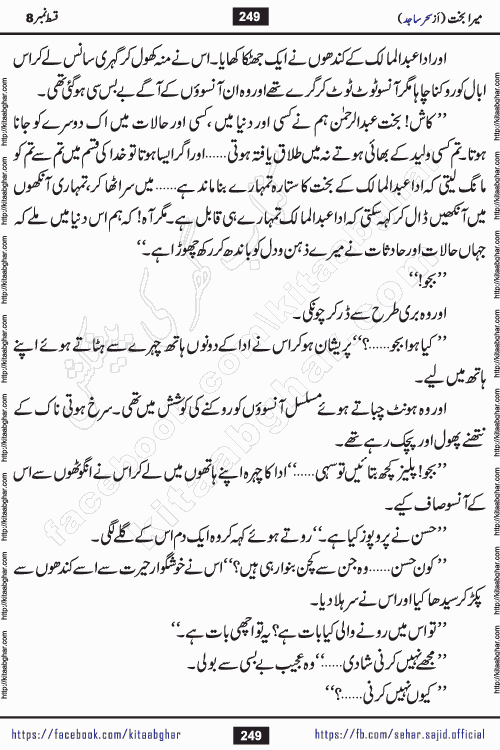 میرا بخت (از سحر ساجد)
249
قسط نمبر 8
اور ادا عبدالمالک کے کندھوں نے ایک جھٹکا کھایا۔ اس نے منہ کھول کر گہری سانس لے کر اس
ابال کو روکنا چاہا مگر آنسو ٹوٹ ٹوٹ کر گرے تھے اور وہ ان آنسوؤں کے آگے بے بس سی ہو گئی تھی۔
’’کاش! بخت عبدالرحمٰن ہم نے کسی اور دنیا میں، کسی اور حالات میں اک دوسرے کو جانا
ہوتا۔ تم کسی ولید کے بھائی ہوتے نہ میں طلاق یافتہ ہوتی......اور اگر ایسا ہوتا تو خدا کی قسم میں تم سے تم کو
مانگ لیتی کہ ادا عبدالمالک کے بخت کا ستارہ تمہارے بنا ماند ہے......میں سر اٹھا کر، تمہاری آنکھوں
میں آنکھیں ڈال کر کہہ سکتی کہ ادا عبدالمالک تمہارے ہی قابل ہے۔ مگر آہ! کہ ہم اس دنیا میں ملے کہ
جہاں حالات اور حادثات نے میرے ذہن و دل کو باندھ کر رکھ چھوڑا ہے۔‘‘
’’بجو!‘‘
اور وہ بری طرح سے ڈر کر چونکی۔
’’کیا ہوا بجو......؟‘‘ پریشان ہو کر اس نے ادا کے دونوں ہاتھ چہرے سے ہٹاتے ہوئے اپنے
ہاتھ میں لیے۔
اور وہ ہونٹ چباتے ہوئے مسلسل آنسوؤں کو روکنے کی کوشش میں تھی۔ سرخ ہوتی ناک کے
نتھنے پھول اور پچک رہے تھے۔
’’بجو! پلیز کچھ بتائیں تو سہی......‘‘ ادا کا چہرہ اپنے ہاتھوں میں لے کر اس نے انگوٹھوں سے اس
کے آنسو صاف کیے۔
’’حسن نے پروپوز کیا ہے۔‘‘ روتے ہوئے کہہ کر وہ ایک دم اس کے گلے لگی۔
’’کون حسن......وہ جن سے کچن بنوا رہی ہیں؟‘‘ اس نے خوشگوار حیرت سے اسے کندھوں سے
پکڑ کر سیدھا کیا اور اس نے سر ہلا دیا۔
’’تو اس میں رونے والی کیا بات ہے؟ یہ تو اچھی بات ہے۔‘‘
’’مجھے نہیں کرنی شادی......‘‘ وہ عجیب بے بسی سے بولی۔
’’کیوں نہیں کرنی......؟‘‘
https://facebook.com/kitaabghar
249
https://fb.com/sehar.sajid.official
http://kitaabghar.com
facebook.com/kitaabghar
kitaabghar.com